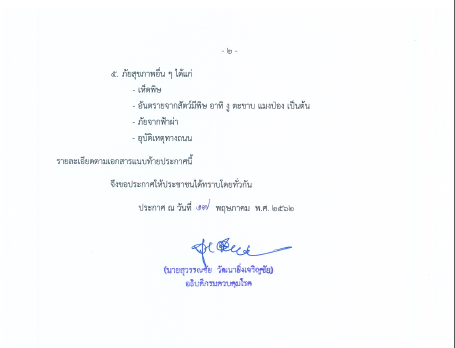 - ๒ -
๕. ภัยสุขภาพอื่น ๆ ได้แก่
- เห็ดพิษ
- อันตรายจากสัตว์มีพิษ อาทิ งู ตะขาบ แมงป่อง เป็นต้น
- ภัยจากฟ้าผ่า
- อุบัติเหตุทางถนน
รายละเอียดตามเอกสารแนบท้ายประกาศนี้
จึงขอประกาศให้ประชาชนได้ทราบโดยทั่วกัน
ประกาศ ณ วันที่ ๑๗ พฤษภาคม พ.ศ. ๒๕๖๒
(นายสุวรรณชัย วัฒนายิ่งเจริญชัย)
อธิบดีกรมควบคุมโรค